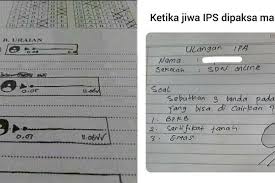 B. URAIAN
0.07
0.07
Ketika jiwa IPS dipaksa ma
Ulangan IPA
Nama :
Sekolah : SDN online
Soal
Sebutkan 3 benda pada
yang bisa di cairkan
1. BPKB
2. Sertifikat tanah
3. Emas